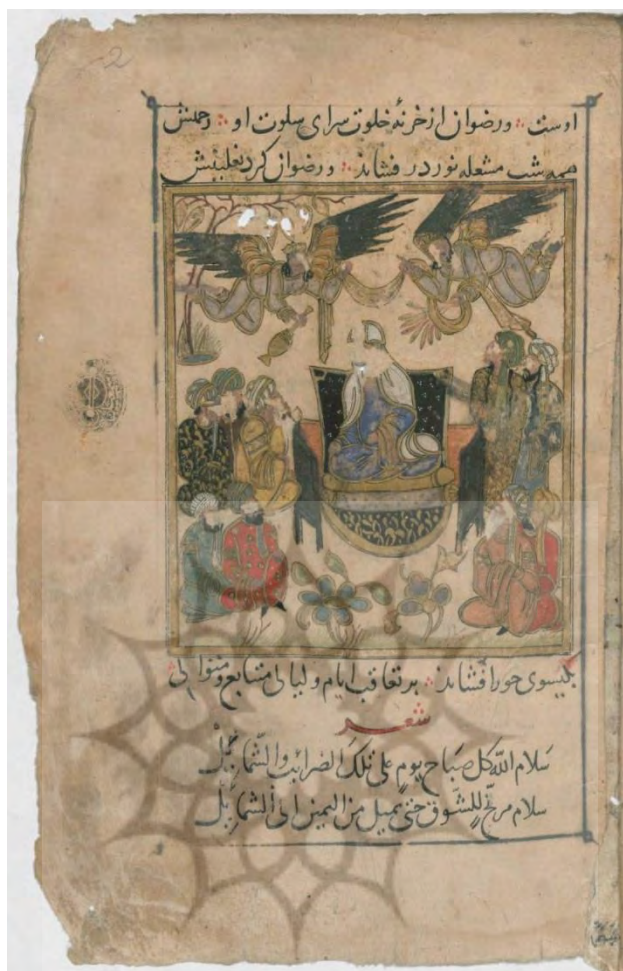 2
اوست ؞ ورضوان از خزنهٔ خلوت سرای سلوت او ؞ رحمتش
همه شب مشعله نور در فشاند ؞ ورضوان کرد نعلینش
بگیسوی حور افشاند ؞ بر تعاقب ایام و لیالی متتابع و متوالی
شعر
سَلام اللّه کل صَباح یومٍ علی تلک الضرائب والشَّمائِلْ
سلام مرنّحٍ للشَّوق حتی یمیل من الیمین الی الشمائِل